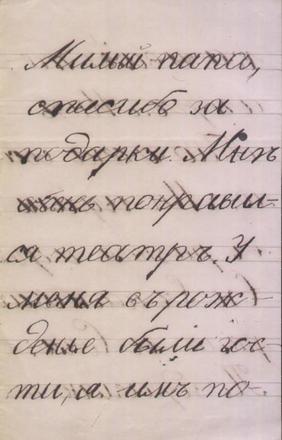 Милый папа,
спасибо за
подарки. Мнѣ
очень понравил-
ся театръ. У
меня въ рож-
денье были гос-
ти, а имъ по-